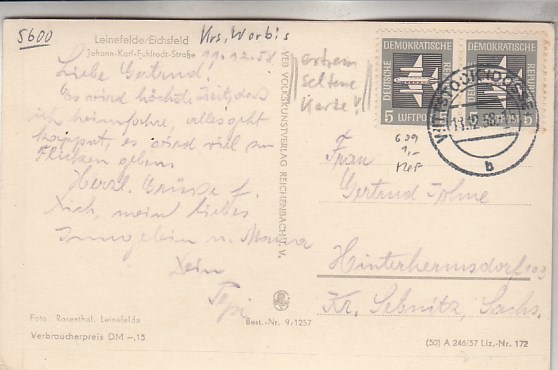 5600
Krs. Worbis
Leinefelde/Eichsfeld
Johann-Karl-Fuhlrodt-Straße
11.12.58
Liebe Gertrud!
Es wird höchste Zeit, dass
ich heimfahre, alles geht
kaputt, es wird viel zu
Flicken geben
Herzl. Grüsse f.
Dich, mein liebes
u. Mama
Dein
Foto: Rosenthal, Leinefelde
Verbraucherpreis DM -,15
VEB VOLKSKUNSTVERLAG REICHENBACH I. V.
Best.-Nr. 9/1257
extrem
seltene
Karte!
DEUTSCHE DEMOKRATISCHE REPUBLIK
5 LUFTPOST
DEUTSCHE DEMOKRATISCHE REPUBLIK
5
11.12.58
b
609
1,-
Frau
Gertrud
Hinterhermsdorf
Kr. Sebnitz, Sachs.
(50) A 246/57 Liz.-Nr. 172